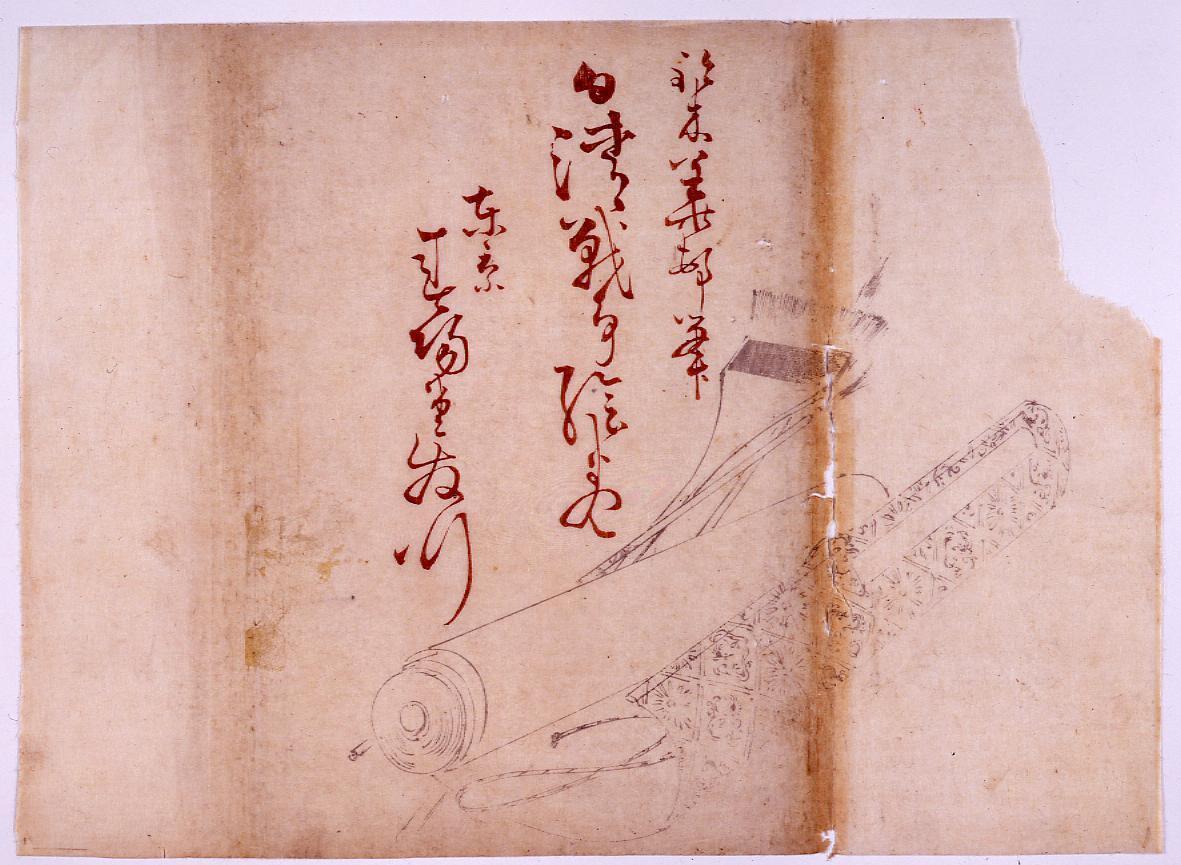 鈴木華邨筆
日清戦争絵巻
東京
春陽堂発行